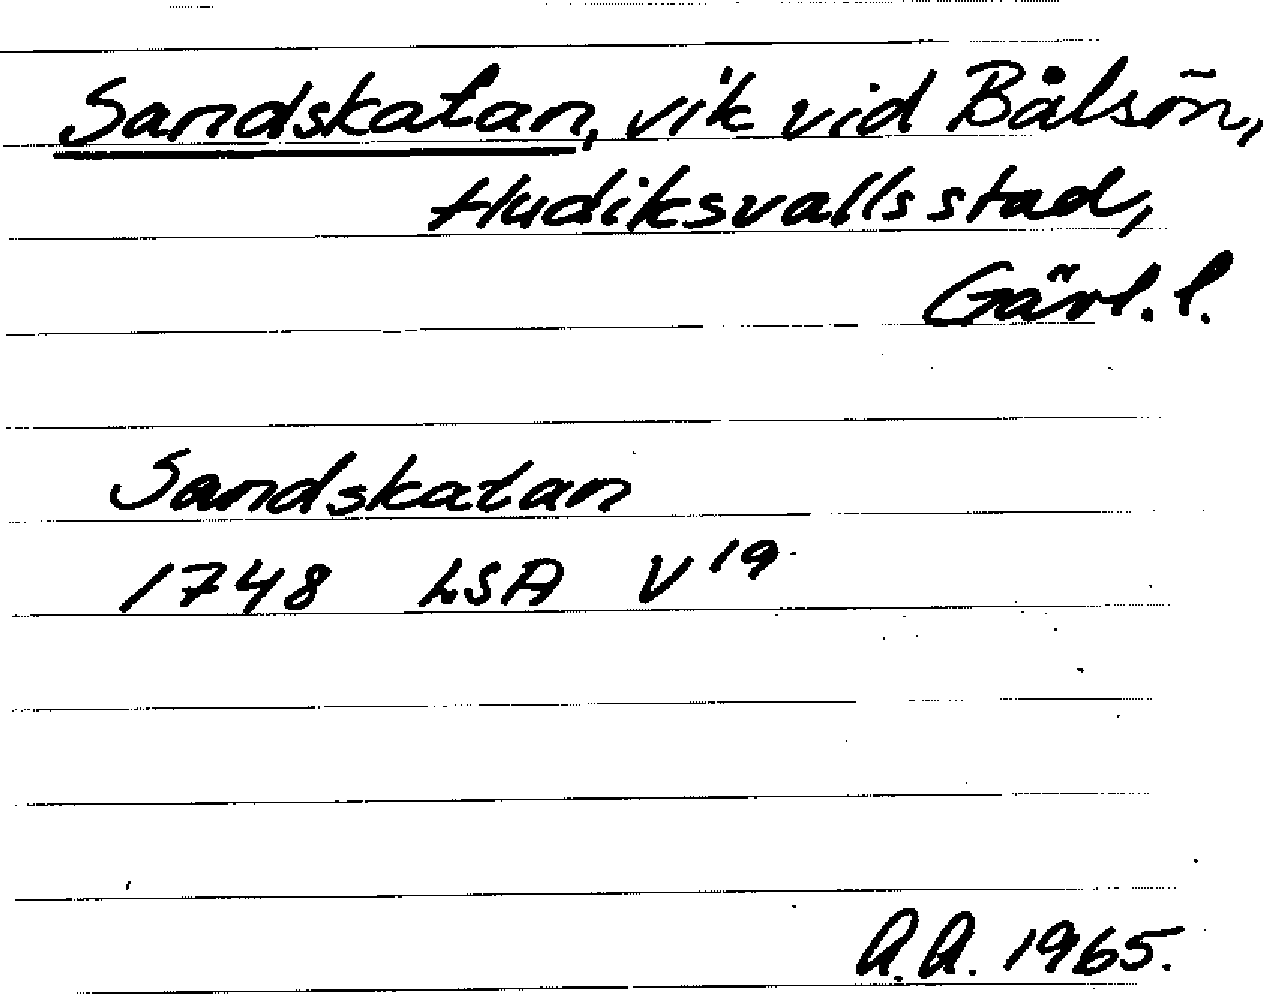 Sandskatan, vik vid Bålsön,
Hudiksvalls stad,
Gävl. l.
Sandskatan
1748 LSA V19
A.A. 1965.